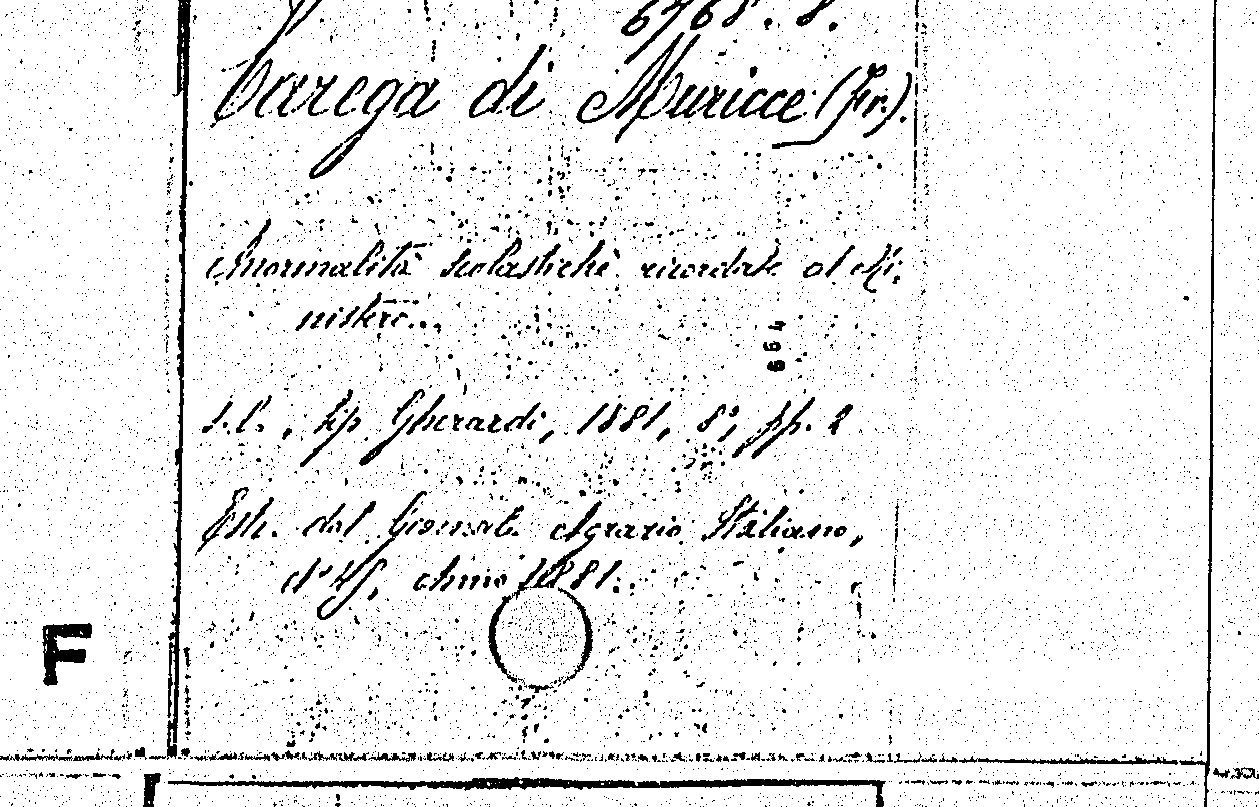 6768. 8.
Carega di Muricce (Fr.).
Anormalità scolastiche ricordate al Mi-
nistero...
664
s.l., tip. Gherardi, 1881, 8°, pp. 2
Estr. dal Giornale Agrario Italiano,
Anno 1881.
F